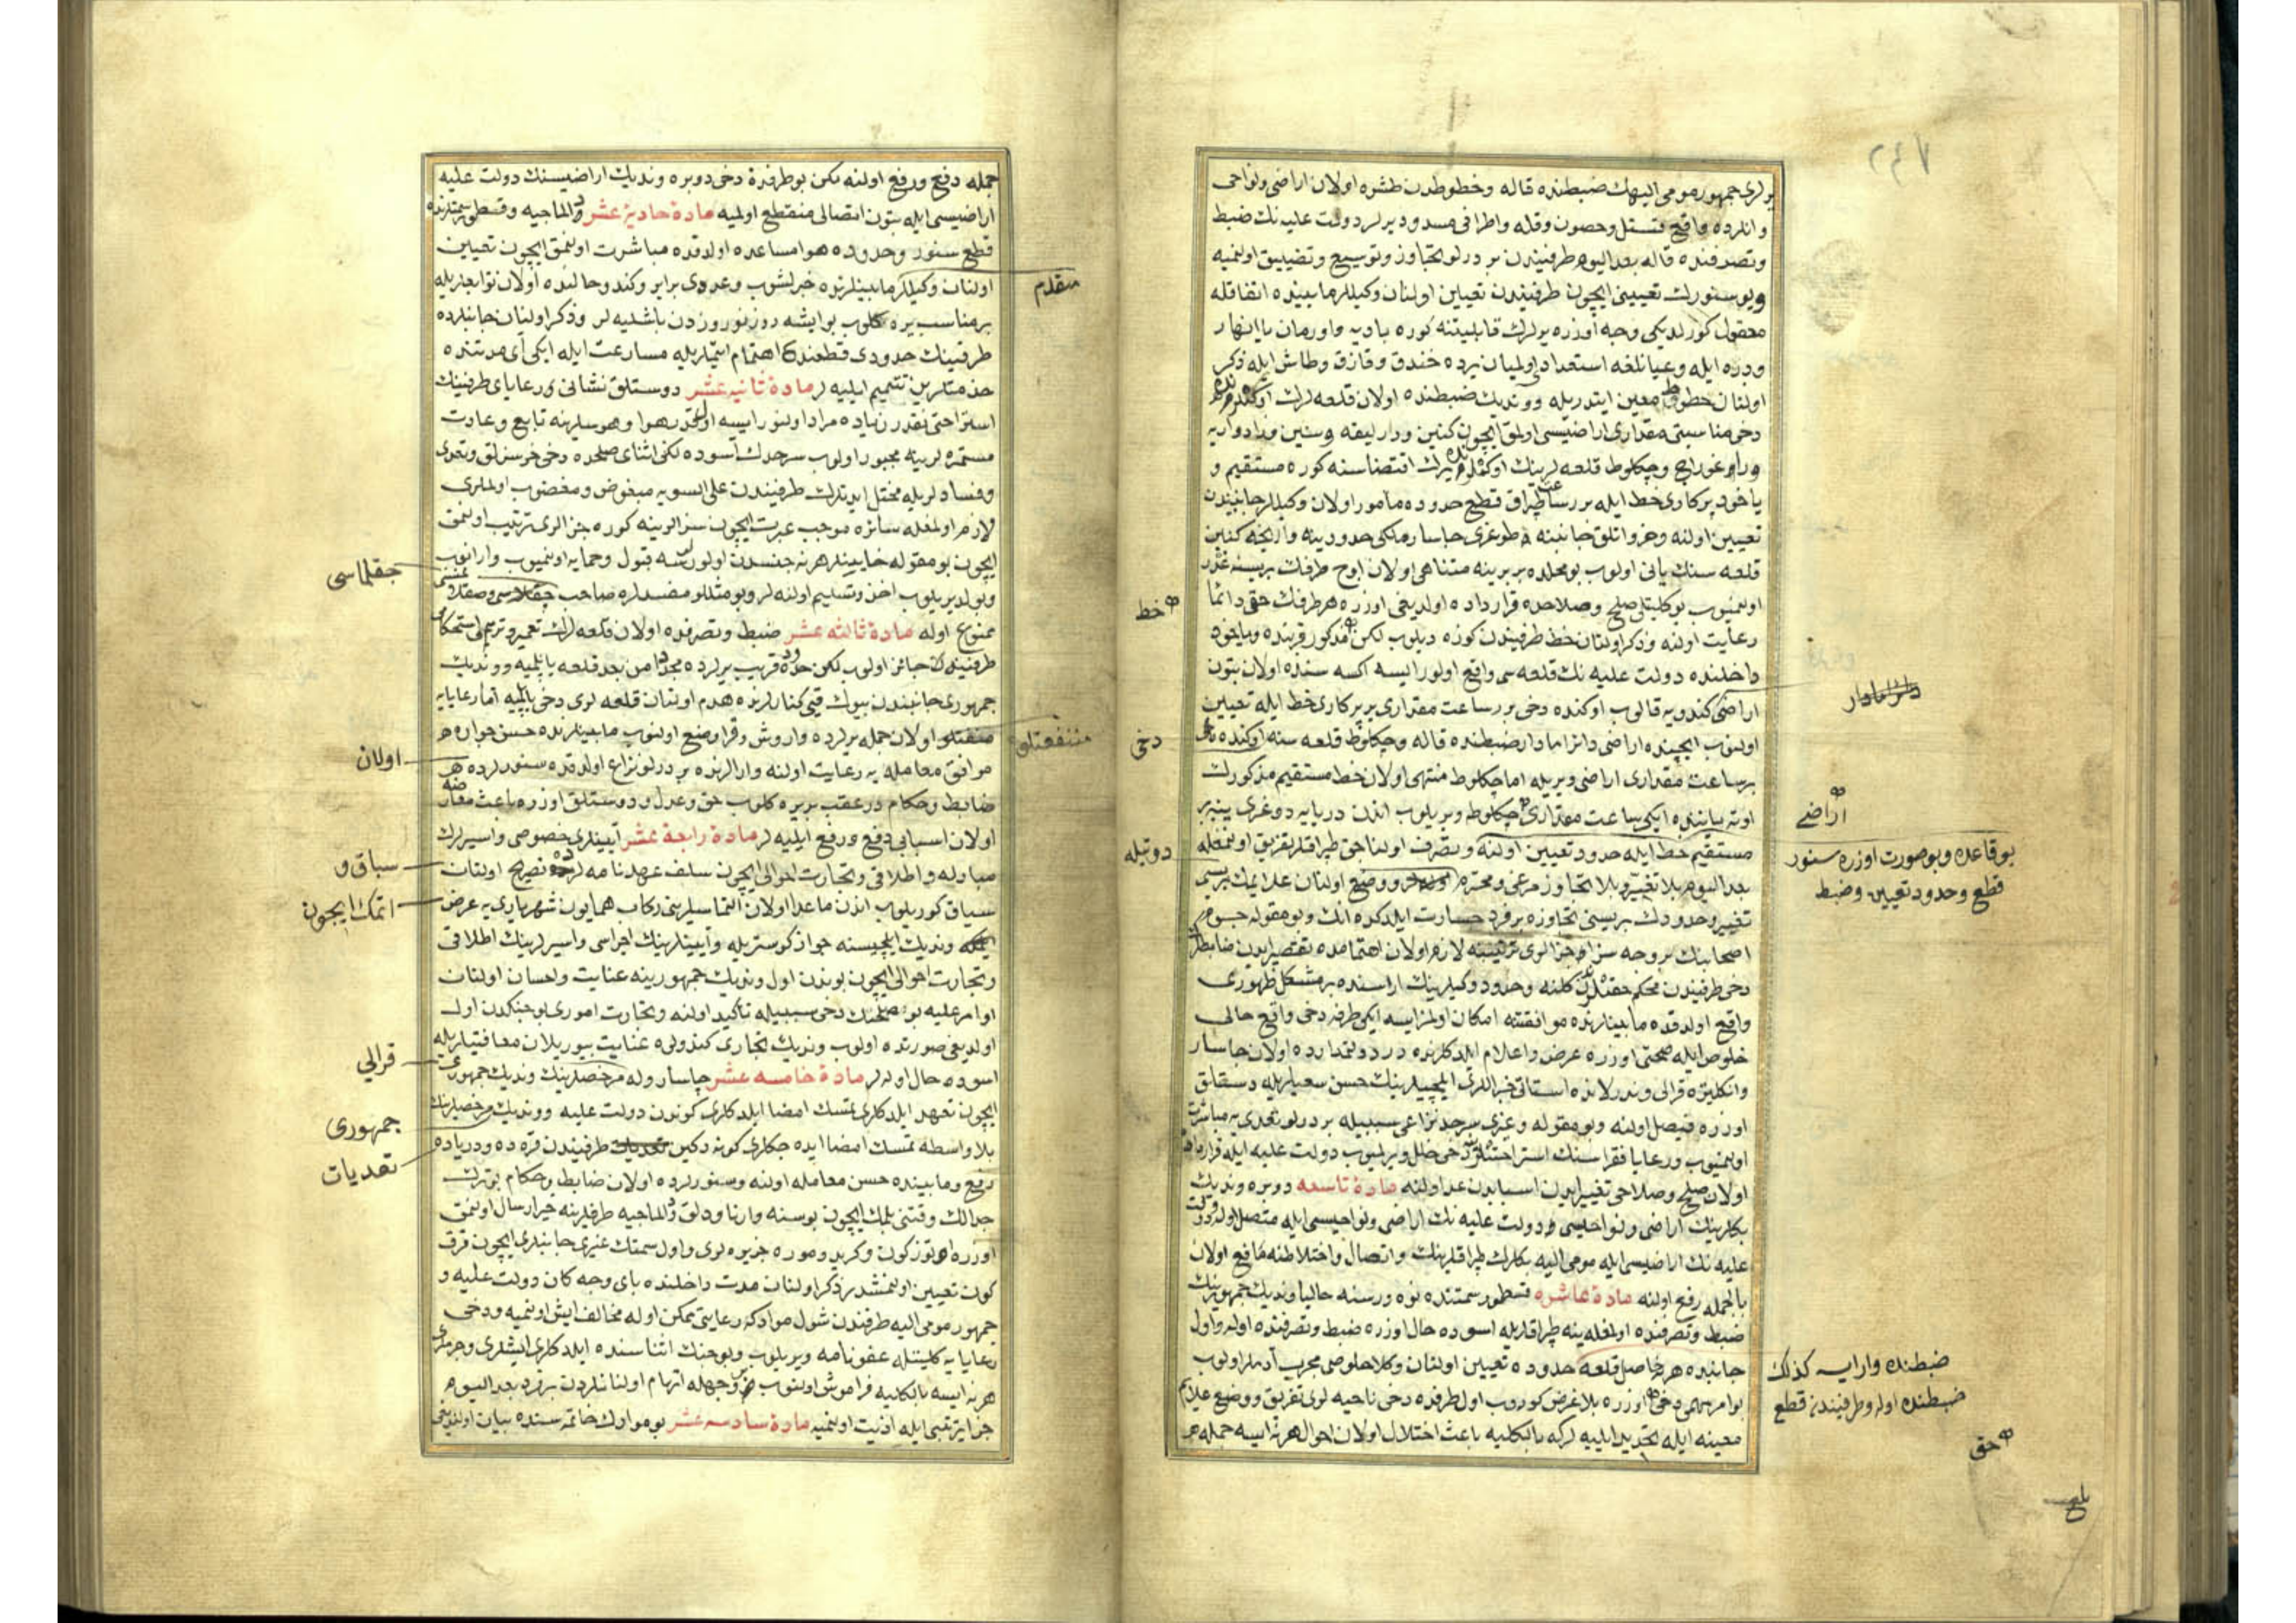 ٢٤٧
یرلری جمهور مومی الیهك ضبطنده قاله وخطوطدن طشره اولان اراضی ونواحی
وانلرده واقع قستل وحصون وقله واطرافی مسدود یرلر دولت علیه نك ضبط
وتصرفنده قاله بعد الیوم طرفیندن بر درلو تجاوز وتوسیع وتضییق اولنمیه
وبو سنورك تعیینی ایچون طرفیندن تعیین اولنان وكیللر مابیننده اتفاقله
معقول كورلدیكی وجه اوزره یرلرك قابلیتنه كوره بادیه واورمان یا انهار
ودره ایله وعیانلغه استعدادی اولمیان یرده خندق وقازق وطاش ایله ذكر
اولنان خطوط معین ایتدریله ووندیك ضبطنده اولان قلعه لرك اوكلرنده
دخی مناسبتی مقداری اراضیسی اولمق ایچون كنین ودارلیقه وسنین
وچكلوط قلعه لرینك اوكلرنده یرك اقتضاسنه كوره مستقیم و
یاخود پركاری خط ایله برر ساعت طپراق قطع حدوده مأمور اولان وكیللر جانبیندن
تعیین اولنه وخرواتلق جانبنه طوغری جاسار ملكی حدودینه وارنجه كنین
قلعه سنك یانی اولوب بو محلده بربرینه متناهی اولان اوچ طرفك بریسنه غدر
اولنمیوب بو كلیتلی صلح وصلاحده قرارداده اولدیغی اوزره هر طرفك حقی دائما
رعایت اولنه وذكر اولنان خط طرفیندن كوزه دیلوب لكن مذكور قربنده ویاخود
خط
داخلنده دولت علیه نك قلعه سی واقع اولور ایسه اكسه سنده اولان بتون
اراضی كندویه قالوب اوكنده دخی بر ساعت مقداری پركاری خط ایله تعیین
اولنوب ایچنده اراضی دائما مادار ضبطنده قاله وچكلوط قلعه سنه اوكنده
دخی
بر ساعت مقداری اراضی ویریله اما چكلوط منتهی اولان خط مستقیم مذكورك
اوته یاننده ایكی ساعت مقداری چكلوط ویریلوب اندن دریایه دوغری ینه بر
اراضی
مستقیم خط ایله حدود تعیین اولنه وتصرف اولناجق طپراقلر تفریق اولنمغله
بو قاعده وبو صورت اوزره سنور
قطع وحدود تعیین وضبط
بعد الیوم بلا تغییر وبلا تجاوز مرعی ومحترم ووضع اولنان علایمك برینی
تغییر وحدودك بریسنی تجاوزه بر فرد جسارت ایلدكده انك وبو مقوله جسور
اصحابنك بر وجه سزا وجزالری ترتیبنه لازم اولان اهتمامده تقصیر ایدن ضابطلرك
دخی طرفیندن محكم حقلرندن كلنه وحدود وكیللرینك اراسنده بر مشكل ظهوری
واقع اولدقده مابینلرنده موافقته امكان اولمز ایسه ایكی طرفه دخی واقع حالی
خلوص ایله صحتی اوزره عرض واعلام ایلدكلرنده در دولتمدارده اولان جاسار
وانكلتره قرالی وندرلانده استاتی جنراللری ایلچیلرینك حسن سعیلریله دستلق
اوزره فیصل اولنه وبو مقوله وغیری سرحد نزاعی سببیله بر درلو تعدی یه مباشرت
اولنمیوب ورعایا فقراسنك استراحتلرینه دخی خلل ویرلمیوب دولت علیه ایله قرارداده
اولان صلح وصلاحی تغییر ایدن اسبابدن عد اولنه مادۀ تاسعه دوبره وندیك
بكلرینك اراضی ونواحیسی دولت علیه نك اراضی ونواحیسی ایله متصل اوله دولت
علیه نك اراضیسی ایله مومی الیه بكلرك طپراقلرینك واتصال واختلاطنه مانع اولان
بالجمله رفع اولنه مادۀ عاشره قسطور سمتنده نوه ورسنه حالیا وندیك جمهورینك
ضبط وتصرفنده اولمغله ینه طپراقلریله اسوده حال اوزره ضبط وتصرفنده اوله واول
جانبده هر نه حاصل قلعه حدوده تعیین اولنان وكلا خلوصی مجرب آدملر اولوب
ضبطنده وار ایسه كذلك
ضبطنده اوله وطرفیندن قطع
بو امر مهمی دخی اوزره بلا غرض كوروب اول طرفده دخی ناحیه لری تفریق ووضع علایم
حق
معینه ایله تحدید ایلیه لر كه بالكلیه باعث اختلال اولان احوال هر نه ایسه جمله
بلغ
جمله دفع ورفع اولنه لكن بو طرفده دخی دوبره وندیك اراضیسنك دولت علیه
اراضیسی ایله بتون اتصالی منقطع اولمیه مادۀ حادیۀ عشر دالماچیه وقسطور سمتلرنده
قطع سنور وحدوده هوا مساعده اولدقده مباشرت اولنمق ایچون تعیین
اولنان وكیللر مابینلرنده خبرلشوب وعددی برابر وكندو حالنده اولان توابعلریله
مقدم
بر مناسب یره كلوب بو ایشه روز نوروزدن باشلیه لر وذكر اولنان جانبلرده
طرفینك حدودی قطعنده اهتمام ایتملریله مسارعت ایله ایكی آی مدتنده
خدمتلرین تتمیم ایلیه لر مادۀ ثانیۀ عشر دوستلق نشانی ورعایای طرفینك
استراحتی نقدر زیاده مراد اولنور ایسه اولقدر هوا وهوسلرینه تابع وعادت
مستمره لرینه مجبور اولوب سرحدك آسوده لكی اثنای صلحده دخی خرسزلق وتعدی
وفسادلریله مختل ایدنلرك طرفیندن علی السویه مبغوض ومغضوب اولملری
لازم اولمغله سائره موجب عبرت ایچون سزالرینه كوره جزالری ترتیب اولنمق
ایچون بو مقوله خاینلر هر نه جنسدن اولورلرسه قبول وحمایه اولنمیوب وارانوب
جقلماسی
وبولدیریلوب اخذ وتسلیم اولنه لر وبو مثللو مفسدلره صاحب
ممنوع اوله مادۀ ثالثۀ عشر ضبط وتصرفده اولان قلعه لرك تعمیر وترمیم واستحكامی
طرفینه جائز اولوب لكن حدوده قریب یرلرده مجددا من بعد قلعه یاپلمیه ووندیك
جمهوری جانبندن بیوك قیی كنارلرنده هدم اولنان قلعه لری دخی یاپلمیه اما رعایایه
منفعتلی اولان جمله یرلرده واروش وقرا وضع اولنوب مابینلرنده حسن جواره
منفعتلی
موافق معامله یه رعایت اولنه وارالرنده بر درلو نزاع اولدقده سنورلرده
اولان
ضابط وحكام در عقب بر یره كلوب حق وعدل ودوستلق اوزره باعث معارضه
اولان اسبابی دفع ورفع ایلیه لر مادۀ رابعۀ عشر آیینلری خصوصی واسیرلرك
مبادله واطلاقی وتجارت احوالی ایچون سلف عهدنامه لرده تصریح اولنان
سباق و
سیاق كوریلوب اندن ماعدا اولان التماسلرینی ركاب همایون شهریاری یه عرض
اتمك ایچون
وندیك ایلچیسنه جواز كوستریله وآیینلرینك اجراسی واسیرلرینك اطلاقی
وتجارت احوالی ایچون بوندن اول وندیك جمهورینه عنایت واحسان اولنان
اوامر علیه بو صلحك دخی سببیله تأكید اولنه وتجارت اموری بو جنكدن اول
اولدیغی صورتده اولوب وندیك تجاری كندولره عنایت بیوریلان معافیتلریله
اسوده حال اوله لر مادۀ خامسه عشر جاسار وله مرخصلرینك وندیك جمهوری
قرالی
ایچون تعهد ایلدكلری تمسك امضا ایلدكلری كوندن دولت علیه ووندیك مرخصلرینك
جمهوری
بلا واسطه تمسك امضا ایده جكلری كونه دكین طرفیندن قره ده ودریاده
تعدیات
رفع ومابینده حسن معامله اولنه وسنورلرده اولان ضابط وحكام بو ترك
جدالك وقتنی بلمك ایچون بوسنه وارناودلق ودالماچیه طرفلرینه خبر ارسال اولنمق
اوزره اوتوز كون وكرید وموره جزیره لری واول سمتك غیری جانبلری ایچون قرق
كون تعیین اولنمشدر ذكر اولنان مدت داخلنده بای وجه كان دولت علیه و
جمهور مومی الیه طرفندن شول مواد كه رعایتی ممكن اوله مخالف ایش اولنمیه ودخی
رعایایه كلیتله عفونامه ویریلوب وبو جنك اثناسنده ایلدكلری ایشلری وجرملری
هر نه ایسه بالكلیه فراموش اولنوب وجهله اتهام اولنانلردن بر فرد بعد الیوم
جزا ترتیبی ایله اذیت اولنمیه مادۀ سادسه عشر بو موادك خاتمه سنده بیان اولندیغی